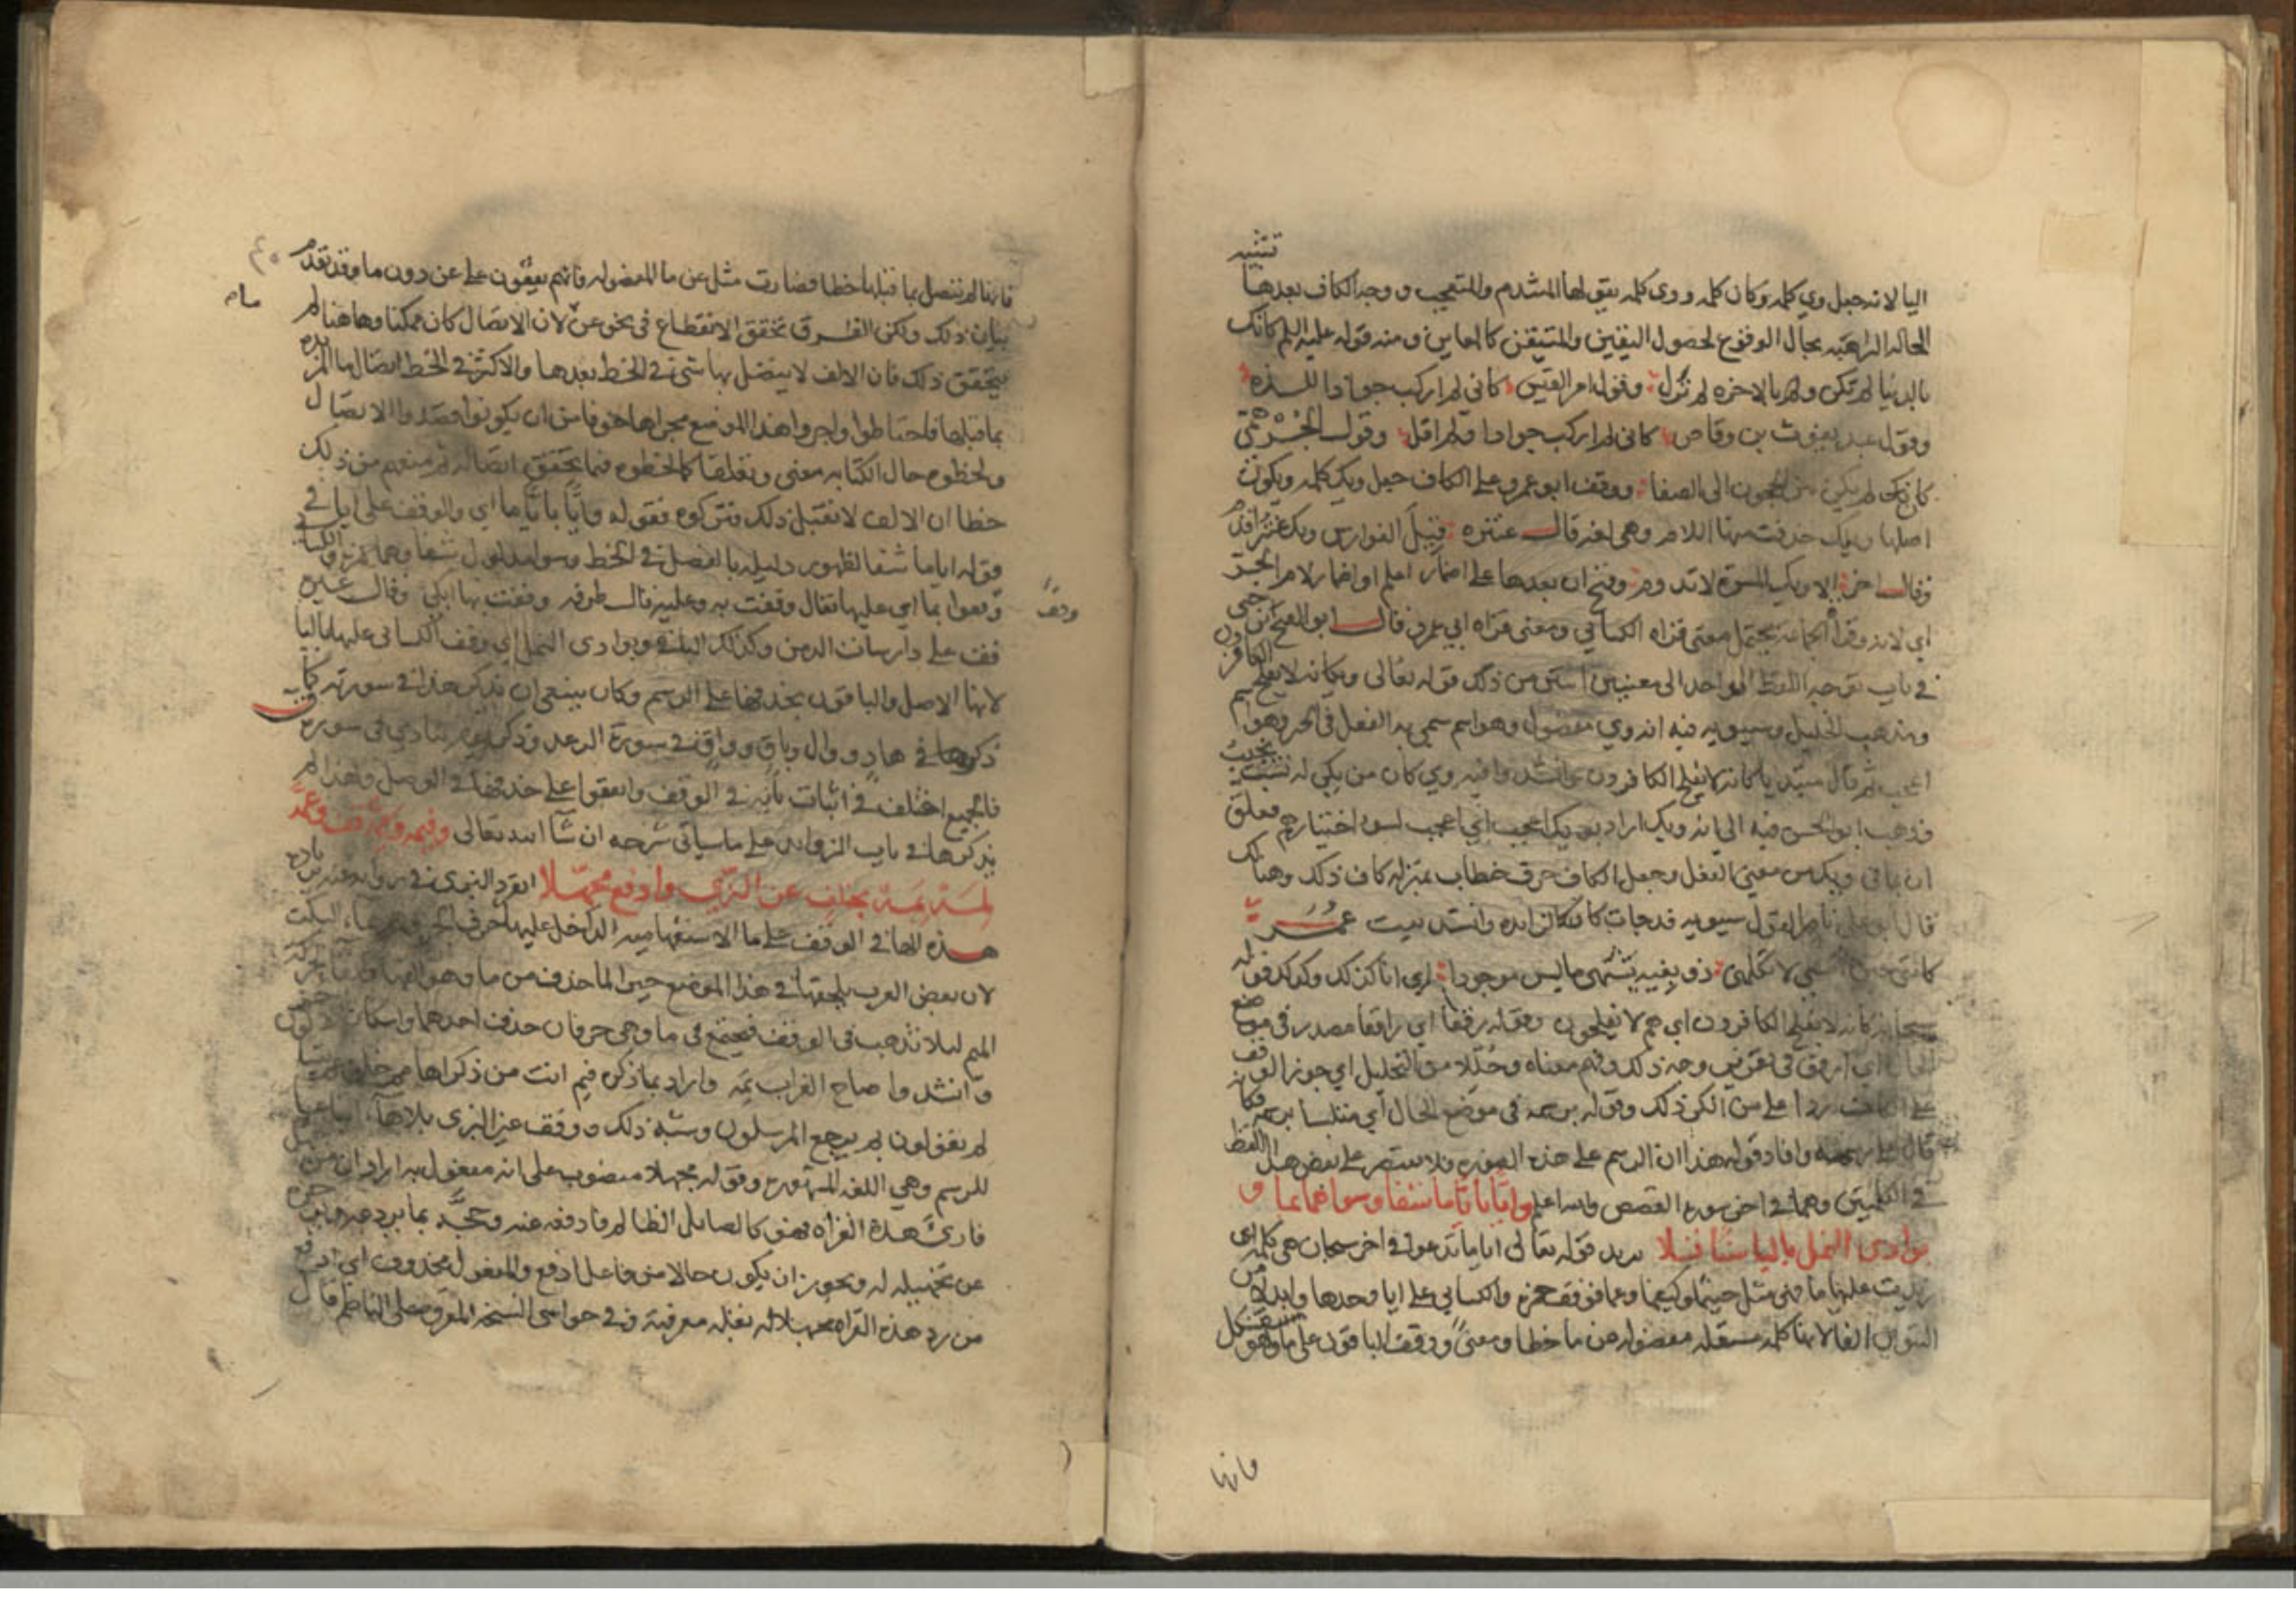 تشبيه
اليا لانه جعل وي كلمه وكان كلمه ووي كلمه يقولها المتندم والمتعجب ووجه الكاف بعدها
الحاله الراهنه بحال الوقوع لحصول اليقين والمتيقن كالمعاين ومنه قوله عليه السلم كانك
بالدنيا لم تكن وكانك بالاخره لم تزل وقول امرؤ القيس كاني لم اركب جوادا للذه
وقول عبد يغوث بن وقاص كاني لم اركب جوادا ولم اقل وقول الجرهمي
كان لم يكن بين الحجون الى الصفا ووقف ابو عمرو على الكاف جعل ويك كلمه ويكون
اصلها ويلك حذفت منها اللام وهي لغه قال عنتره قيل الفوارس ويك عنتر اقدم
وقال اخر الا ويك المسرة لا تدوم وفتح ان بعدها على اضمار اعلم او اضمار لام الجر
اي لانه وقراه الجماعه تحتمل معنى قراه الكسائي ومعنى قراه ابي عمرو قال ابو الفتح بن جني
في باب توجه اللفظ الواحد الى معنيين اثنين من ذلك قوله تعالى ويكانه لا يفلح الكافرون
ومذهب الخليل وسيبويه فيه انه وي مفصول وهو اسم سمي به الفعل في الخبر وهو اسم
اعجب ثم قال مبتديا كانه لا يفلح الكافرون وانشد وافيه وي كان من يكن له نشب يحبب
وذهب ابو الحسن فيه الى انه ويك اراد ويك اعجب اي اعجب لسوء اختيارهم فعلق
ان بما في ويك من معنى الفعل وجعل الكاف حرف خطاب بمنزله كاف ذلك وهنالك
قال ابو علي ناصرا لقول سيبويه قد جات كان كالزايده وانشد بيت عمر
كانني حين امسي لا تكلمني ذو بغيه يشتهي ما ليس موجودا اي انا كذلك وكذلك قوله
سبحانه كانه لا يفلح الكافرون اي هم لا يفلحون وقوله رفقا اي رافقا مصدر في موضع
الحال اي ارفق في تعريض وجه ذلك وفهم معناه وحللا من التحليل اي جوز الوقف
على الكاف ردا على من انكر ذلك وقوله برسمه في موضع الحال اي متلبسا برسمه فكانه
قال على رسمه وافاد قوله هذا ان الرسم على هذه الصوره فلا يعتصر على بعض هذا اللفظ
في الكلمتين وهما في اخر سورة القصص والله اعلم وايا بايا ما شفا وسواهما بما و
بوادي النمل باليا سنا تلا يريد قوله تعالى ايا ما تدعوا في اخر سبحان هي كلمة اي
زيدت عليها ما فهي مثل حيثما وكيفما وعما فوقف حمزه والكسائي على ايا وحدها وابدلا من
التنوين الفا لانها كلمه مستقله مفصوله من ما خطا ومعنى ووقف الباقون على ما وهو مشكل
فانها
فانها لم تتصل بما قبلها خطا فصارت مثل عن ما المفصوله فانهم يقفون على عن دون ما وقد تقدم
بيان ذلك ولكن الفرق تحقق الانقطاع في نحو عن لان الاتصال كان ممكنا وهاهنا لم
يتحقق ذلك فان الالف لا يتصل بها شي في الخط بعدها والاكثر في الخط اتصال ما المزيده
بما قبلها فاحتاطوا واجروا هذا الموضع مجراها خوفا من ان يكونوا قصدوا الاتصال
ولحظوه حال الكتابه معنى وتعلقا كما لحظوه فيما يتحقق اتصاله ثم منعهم من ذلك
خطا ان الالف لا تقبل ذلك فتركوه فقوله وايا بايا ما اي والوقف على ايا في
قوله اياما شفا لظهور دليله بالفصل في الخط وسوا مدلول شفا وهما حمزه والكسائي
وقفوا بما اي عليها يقال وقفت به وعليه قال طرفه وقفت بها ابكي وقال غيره
وقف
قف على دارسات الدمن وكذلك البا في وبوادي النمل اي وقف الكسائي عليها باليا
لانها الاصل والباقون بحذفها على الرسم وكان ينبغي ان يذكر هذا في سورته كما
ذكروها في هاد ووال وباق وواق في سورة الرعد وذكروا يناد في سورة ق
فالجميع اختلف في اثبات يائه في الوقف واتفقوا على حذفها في الوصل وهذا لم
يذكرها في باب الزوائد على ما سياتي شرحه ان شا الله تعالى وفيمه وممه قف وعمه
لمه بمه بخلف عن البزي وادفع مجهلا انفرد البزي في روايه عنه بزياده
هذه الها في الوقف على ما الاستفهاميه الداخل عليها حرف الجر
لان بعض العرب يلحقها في هذا الموضع جبرا لما حذف من ما وهو الفها
الميم ليلا تذهب في الوقف فيجتمع في ما وهي حرفان حذف احدهما واسكان
وانشدوا صاح الغراب بمه واراد بما ذكر فيم انت من ذكراها مم خلق عم يتسا
لم تقولون بم يرجع المرسلون وشبه ذلك ووقف غير البزي بلا هاء اتباعا
للرسم وهي اللغه المشهوره وقوله مجهلا منصوب على انه مفعول به اراد ان من جهل
قارئ هذه القراه فهو كالصايل الظالم فادفعه عنه وحجه بما يردعه ويزجره
عن تجهيله له ويجوز ان يكون حالا من فاعل ادفع والمفعول محذوف اي ادفع
من رد هذه القراه مجهلا له بقله معرفته وفي حواشي النسخه المقروه على الناظم قال